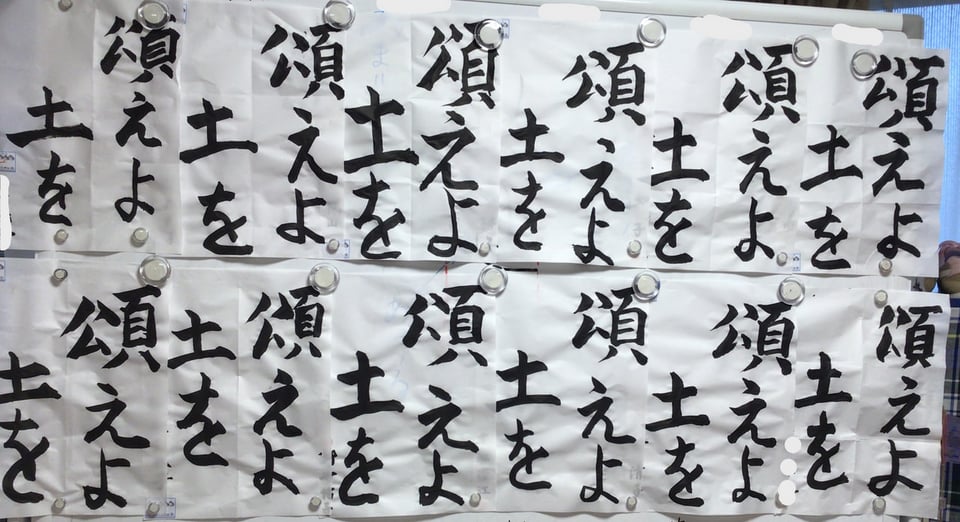 頌えよ
土を
頌えよ
土を
頌えよ
土を
頌えよ
土を
頌えよ
土を
頌えよ
土を
頌えよ
土を
頌えよ
土を
頌えよ
土を
頌えよ
土を
頌えよ
土を
頌えよ
土を